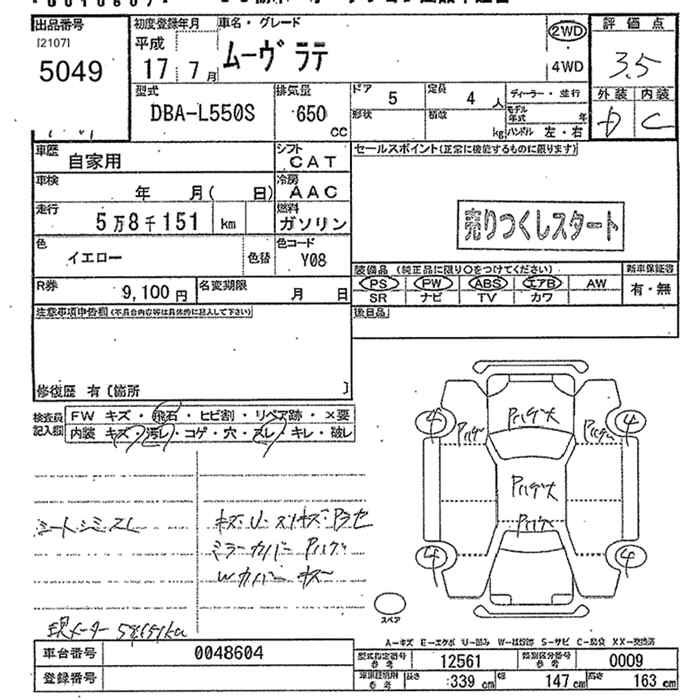 出品番号 初度登録年月 車名・グレード 評価点
[2107] 平成 2WD
5049 17 7月 ムーヴラテ 4WD 3.5
型式 排気量 ドア 5 定員 4人 ディーラー・並行 外装 内装
DBA-L550S 650 cc 形状 積載 kg モデル年式 年 ハンドル 左・右 D C
車歴 自家用 シフト CAT セールスポイント(正常に機能するものに限ります)
車検 年 月( 日) 冷房 AAC
走行 5万8千151 km 燃料 ガソリン 売りつくしスタート
色 イエロー 色替 色コード Y08
装備品 (純正品に限り○をつけてください) 新車保証書
R券 9,100円 名変期限 月 日 PS PW ABS エアB AW 有・無
SR ナビ TV カワ
注意事項申告欄(不具合内容等は具体的に記入して下さい) 後日品
修復歴 有 [箇所 ]
検査員記入欄 FW キズ・飛石・ヒビ割・リペア跡・×要
内装 キズ・汚レ・コゲ・穴・スレ・キレ・破レ
4 Pハゲ Pハゲ大 Pハゲ 4
Pハゲ大
Pハゲ
4 4
シートシミスレ
ミラーカバー Pハゲ
スペア
現メーター 58151km
A-キズ E-エクボ U-凹み W-補修跡 S-サビ C-腐食 XX-交換済
車台番号 0048604 型式指定番号 参考 12561 類別区分番号 参考 0009
登録番号 長さ 339 cm 幅 147 cm 高さ 163 cm